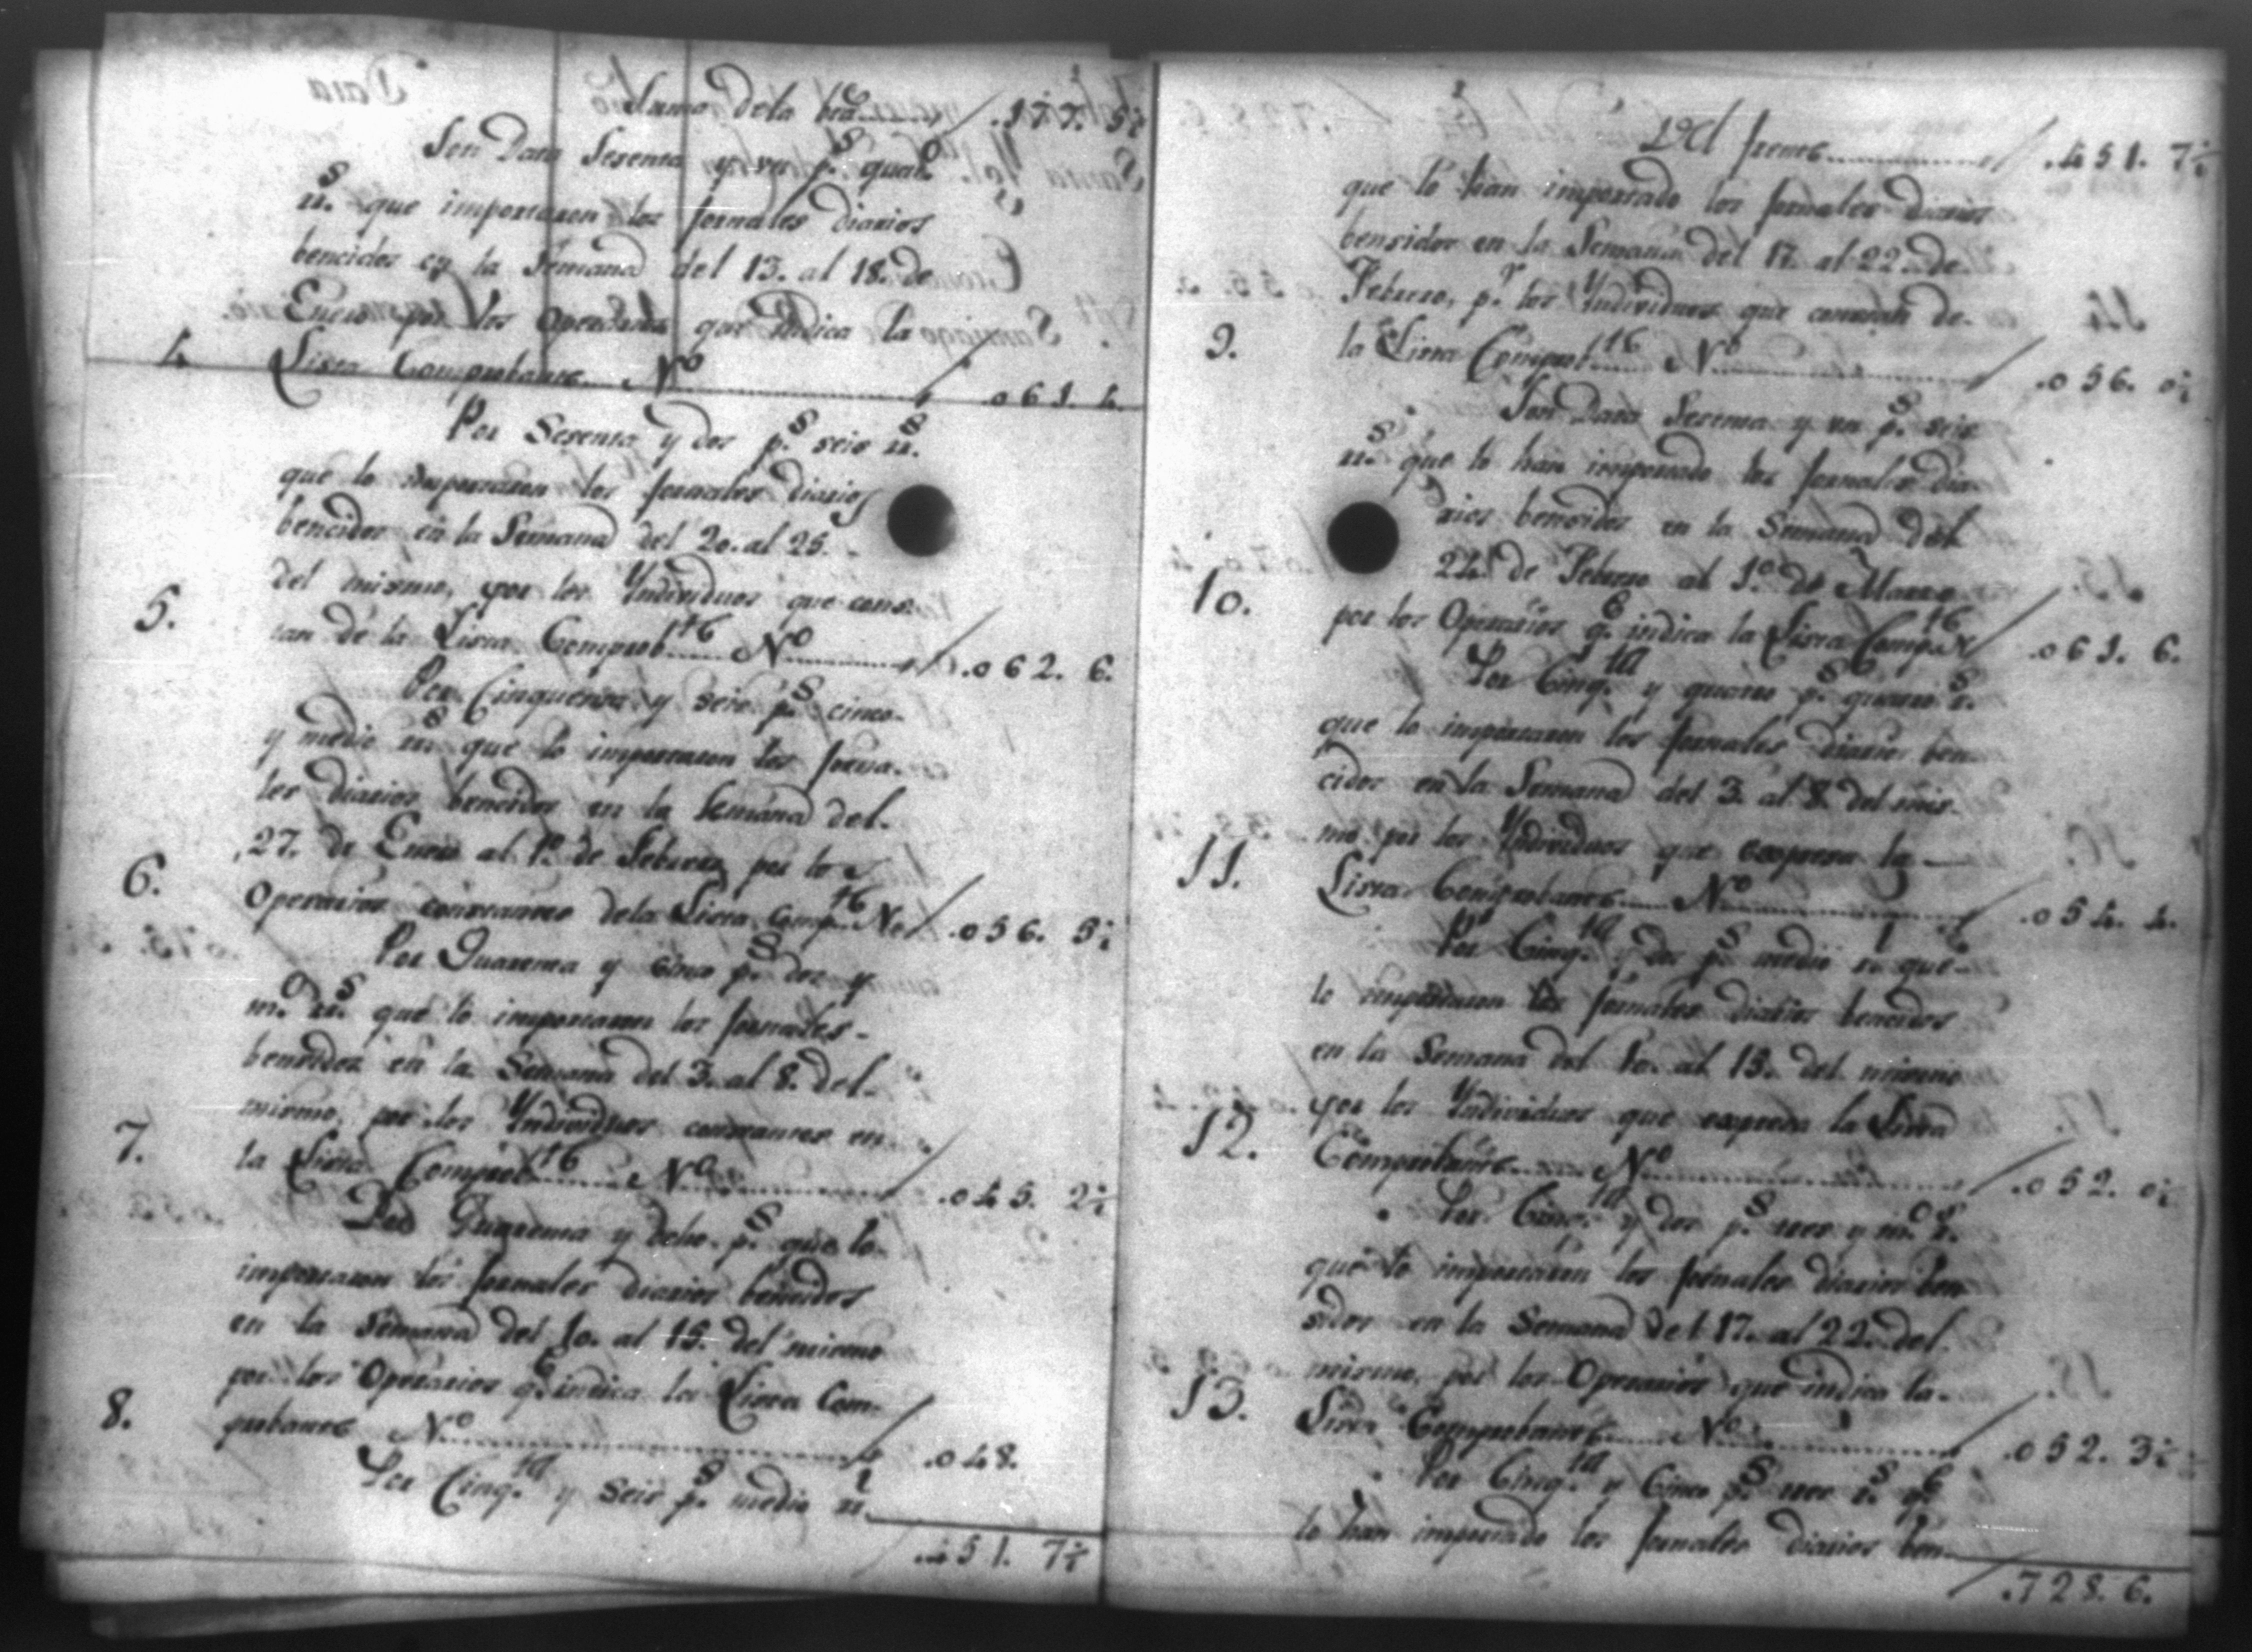 Suma de la bta........ .177. 5½
Son Data Sesenta y un p.s quat.o
rr.s que importaron los Jornales diarios
bencidos en la Semana del 13. al 18. de
Enero por los Operarios que indica la
4. Lista Comprobante N.o ........ .061. 4.
Por Sesenta y dos p.s seis rr.s
que lo importaron los Jornales diarios
bencidos en la Semana del 20. al 25.
del mismo, por los Yndividuos que cons-
5. tan de la Lista Comprob.te N.o ........ .062. 6.
Por Cinquenta y seis p.s cinco
y medio rr.s que lo importaron los Jorna-
les diarios bencidos en la Semana del
27. de Enero al 1.o de Febrero por los
6. Operarios constantes de la Lista Comp.te N.o .056. 5½
Por Quarenta y cinco p.s dos y
m.o rr.s que lo importaron los Jornales
bencidos en la Semana del 3. al 8. del
mismo, por los Yndividuos constantes en
7. la Lista Comprob.te N.o ........ .045. 2½
Por Quarenta y ocho p.s que lo
importaron los Jornales diarios bencidos
en la Semana del 10. al 15. del mismo
por los Operarios q.e indica la Lista Com-
8. probante N.o ........ .048.
Por Cinq.ta y Seis p.s medio rr.l
.451. 7½
Del frente ........ .451. 7½
que lo han importado los Jornales diarios
bensidos en la Semana del 17. al 22. de
Febrero, p.r los Yndividuos que constan de
9. la Lista Comprob.te N.o ........ .056. 0½
Son Data Sesenta y un p.s seis
rr.s que lo han importado los Jornales dia-
rios bensidos en la Semana del
24. de Febrero al 1.o de Marzo
10. por los Operarios q.e indica la Lista Comp.te .061. 6.
Por Cinq.ta y quatro p.s quatro r.s
que lo importaron los Jornales diarios ben-
cidos en la Semana del 3. al 8. del mis-
mo por los Yndividuos que expresa la
11. Lista Comprobante N.o ........ .054. 4.
Por Cinq.ta y dos p.s medio r.l que
lo importaron los Jornales diarios bencidos
en la Semana del 10. al 15. del mismo
por los Yndividuos que expresa la Lista
12. Comprobante N.o ........ .052. 0½
Por Cinq.ta y dos p.s tres y m.o r.s
que lo importaron los Jornales diarios ben-
sidos en la Semana del 17. al 22. del
mismo, por los Operarios que indica la
13. Lista Comprobante N.o ........ .052. 3½
Por Cinq.ta y Cinco p.s tres r.s q.e
lo han importado los Jornales diarios ben-
.728. 6.